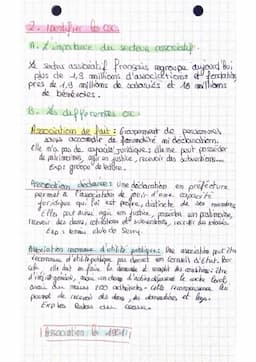 2. Identifier les OSC
A. L'importance du secteur associatif.
Le secteur associatif français regroupe aujourd'hui
plus de 1,3 millions d'associations et fondations
près de 1,9 millions de salariés et 16 millions
de bénévoles.
B. Les différentes OSC
Association de fait : Groupement de personnes
sans accomplir de formalité ni déclaration.
Elle n'a pas de capacité juridique : elle ne peut posséder
de patrimoines, agir en justice, recevoir des subventions...
Exp : groupe de
Association déclarée : Une déclaration en préfecture
permet à l'association de jouir d'une capacité
juridique qui lui est propre, distincte de ses membres
Elle peut aussi agir en justice, posséder un patrimoine,
recevoir des dons, cotisations et subventions,
Exp : tennis club de
Association reconnue d'utilité publique : Une association peut être
reconnue d'utilité publique par décret en Conseil d'État. Pour
cela elle doit en faire la demande et remplir des conditions : être
d'intérêt général, d'activité dépassant le cadre local,
avoir au moins 200 adhérents. Cette reconnaissance lui
permet de recevoir des dons, des donations et legs.
Exp : les Restos du coeur.
Association loi 1901